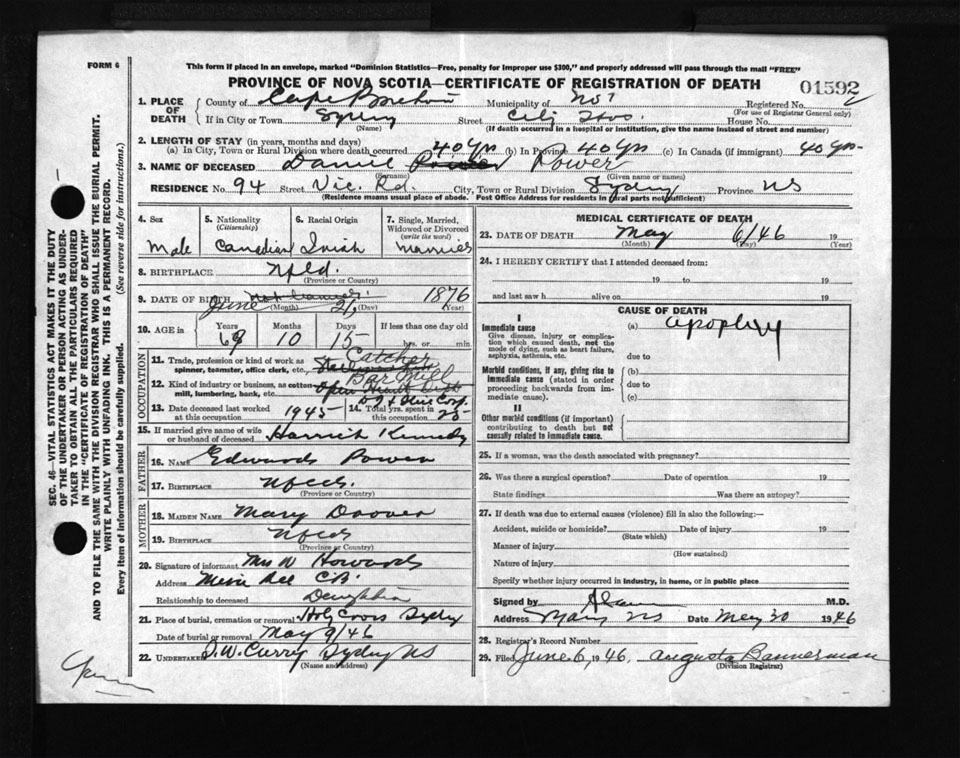 FORM 6
This form if placed in an envelope, marked "Dominion Statistics—Free, penalty for improper use $300," and properly addressed will pass through the mail "FREE"
PROVINCE OF NOVA SCOTIA—CERTIFICATE OF REGISTRATION OF DEATH
01592
1. PLACE OF DEATH County of Cape Breton Municipality of No 7 Registered No.
(For use of Registrar General only)
If in City or Town Sydney Street City Hos. House No.
(Name) (If death occurred in a hospital or institution, give the name instead of street and number)
2. LENGTH OF STAY (in years, months and days)
(a) In City, Town or Rural Division where death occurred 40 Yrs (b) In Province 40 Yrs (c) In Canada (if immigrant) 40 Yrs
3. NAME OF DECEASED Daniel Power Power
(Surname) (Given name or names)
RESIDENCE No. 94 Street Vic. Rd. City, Town or Rural Division Sydney Province NS
(Residence means usual place of abode. Post Office Address for residents in rural parts not sufficient)
4. Sex Male
5. Nationality (Citizenship) Canadian
6. Racial Origin Irish
7. Single, Married, Widowed or Divorced (write the word) Married
8. BIRTHPLACE Nfld.
(Province or Country)
9. DATE OF BIRTH June 21, 1876
(Month) (Day) (Year)
10. AGE in Years 69 Months 10 Days 15 If less than one day old
hrs. or min.
OCCUPATION
11. Trade, profession or kind of work as spinner, teamster, office clerk, etc. Catcher
12. Kind of industry or business, as cotton-mill, lumbering, bank, etc. Bar Mill
13. Date deceased last worked at this occupation 1945 14. Total yrs. spent in this occupation 25
15. If married give name of wife or husband of deceased Harriet Kennedy
FATHER
16. NAME Edward Power
17. BIRTHPLACE Nfld.
(Province or Country)
MOTHER
18. MAIDEN NAME Mary
19. BIRTHPLACE Nfld
(Province or Country)
20. Signature of informant Mrs W Howard
Address Mira Rd C.B.
Relationship to deceased Daughter
21. Place of burial, cremation or removal Holy Cross Sydney
Date of burial or removal May 9/46
22. UNDERTAKER J.W. Curry Sydney NS
(Name and address)
MEDICAL CERTIFICATE OF DEATH
23. DATE OF DEATH May 6/46 19
(Month) (Day) (Year)
24. I HEREBY CERTIFY that I attended deceased from:
19 to 19
and last saw h alive on 19
CAUSE OF DEATH
I
Immediate cause
Give disease, injury or complication which caused death, not the mode of dying, such as heart failure, asphyxia, asthenia, etc.
(a) apoplexy
due to
Morbid conditions, if any, giving rise to immediate cause (stated in order proceeding backwards from immediate cause).
(b)
due to
(c)
II
Other morbid conditions (if important) contributing to death but not causally related to immediate cause.
25. If a woman, was the death associated with pregnancy?
26. Was there a surgical operation? Date of operation 19
State findings Was there an autopsy?
27. If death was due to external causes (violence) fill in also the following:—
Accident, suicide or homicide? Date of injury 19
(State which)
Manner of injury
(How sustained)
Nature of injury
Specify whether injury occurred in industry, in home, or in public place
Signed by M.D.
Address NS Date May 30 1946
28. Registrar's Record Number
29. Filed June 6, 1946, Augusta Bannerman
(Division Registrar)
SEC. 46—VITAL STATISTICS ACT MAKES IT THE DUTY
OF THE UNDERTAKER OR PERSON ACTING AS UNDER-
TAKER TO OBTAIN ALL THE PARTICULARS REQUIRED
IN THE "CERTIFICATE OF REGISTRATION OF DEATH"
AND TO FILE THE SAME WITH THE DIVISION REGISTRAR WHO SHALL ISSUE THE BURIAL PERMIT.
WRITE PLAINLY WITH UNFADING INK. THIS IS A PERMANENT RECORD.
Every item of information should be carefully supplied. (See reverse side for instructions.)